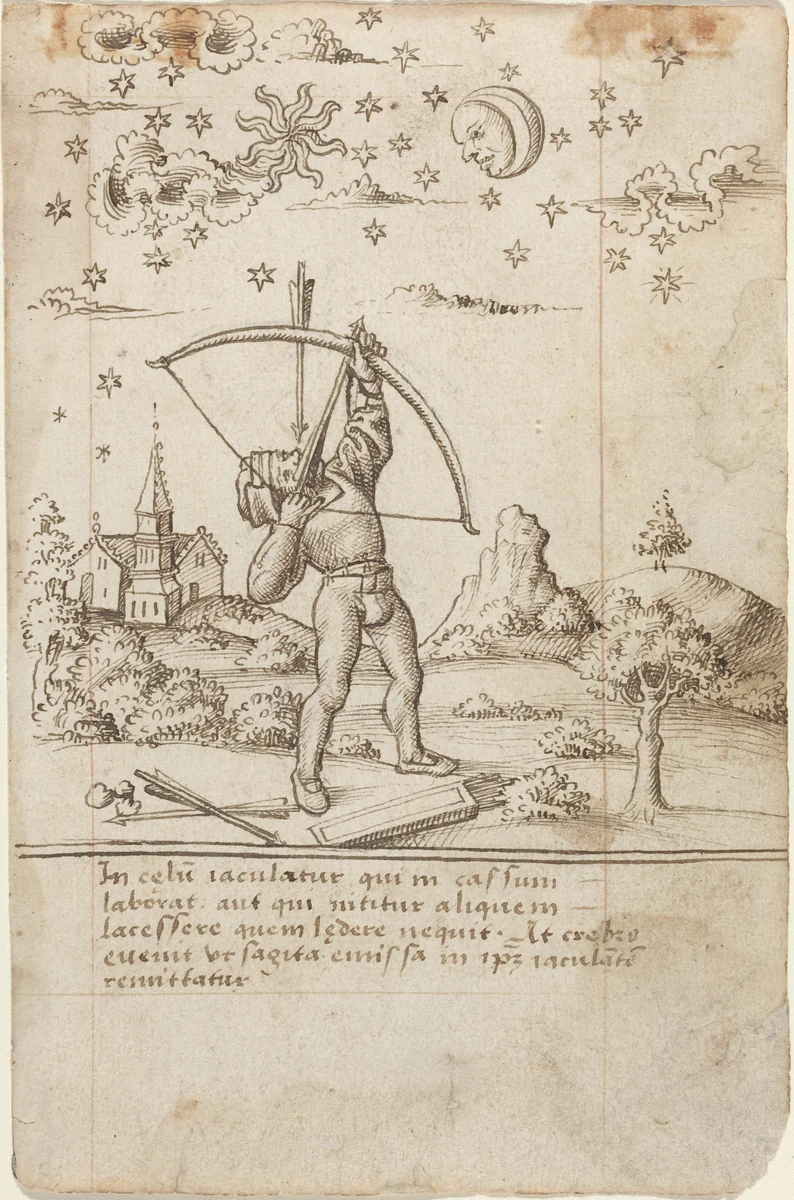 In cęlū iaculatur qui in cassum
laborat. aut qui nititur aliquem
lacessere quem lędere nequit. At crebro
euenit vt sagita emissa in ipꝫ iaculātē
remittatur